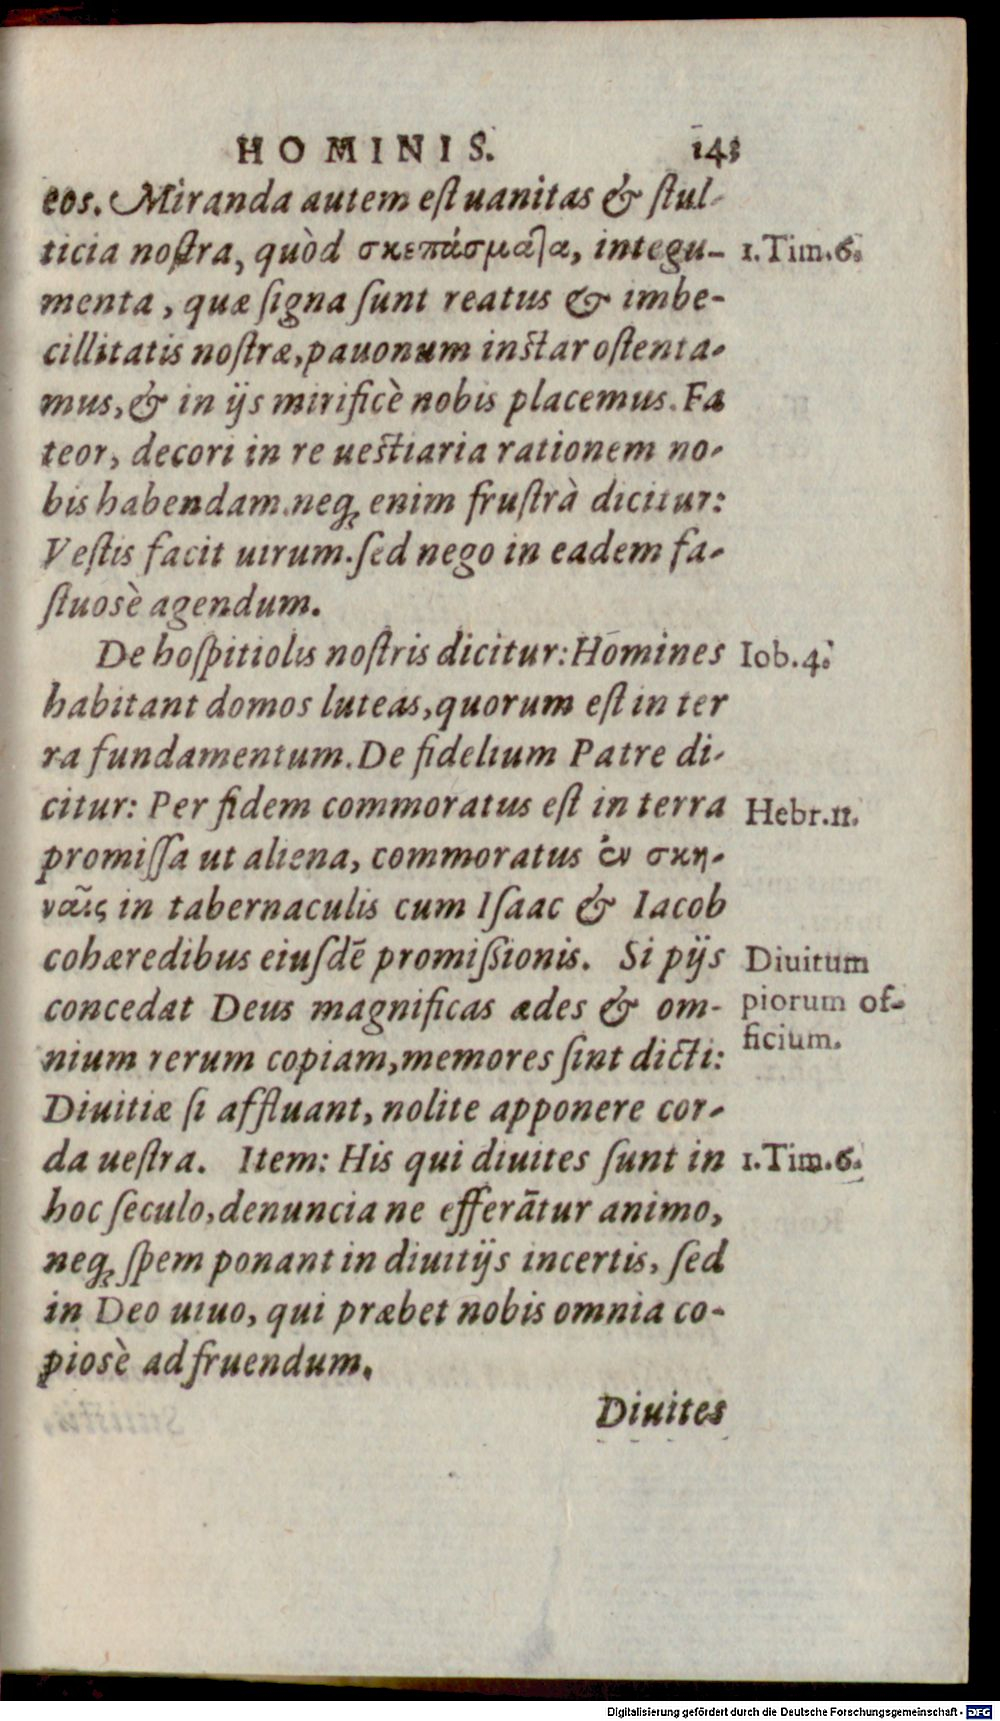 HOMINIS. 143
eos. Miranda autem eſt uanitas & ſtul-
ticia noſtra, quòd σκεπάσματα, integu-
1. Tim. 6.
menta, quæ ſigna ſunt reatus & imbe-
cillitatis noſtræ, pauonum inſtar oſtenta-
mus, & in ijs mirificè nobis placemus. Fa
teor, decori in re ueſtiaria rationem no-
bis habendam. neq; enim fruſtrà dicitur:
Veſtis facit uirum. ſed nego in eadem fa-
ſtuosè agendum.
De hoſpitiolis noſtris dicitur: Homines
Iob. 4.
habitant domos luteas, quorum eſt in ter
ra fundamentum. De fidelium Patre di-
citur: Per fidem commoratus eſt in terra
Hebr. 11.
promiſſa ut aliena, commoratus ἐν σκη-
ναῖς in tabernaculis cum Iſaac & Iacob
cohæredibus eiuſdē promiſsionis. Si pijs
Diuitum
concedat Deus magnificas ædes & om-
piorum of-
nium rerum copiam, memores ſint dicti:
ficium.
Diuitiæ ſi affluant, nolite apponere cor-
da ueſtra. Item: His qui diuites ſunt in
1. Tim. 6.
hoc ſeculo, denuncia ne efferātur animo,
neq; ſpem ponant in diuitijs incertis, ſed
in Deo uiuo, qui præbet nobis omnia co-
piosè ad fruendum.
Diuites
Digitalisierung gefördert durch die Deutsche Forschungsgemeinschaft - DFG